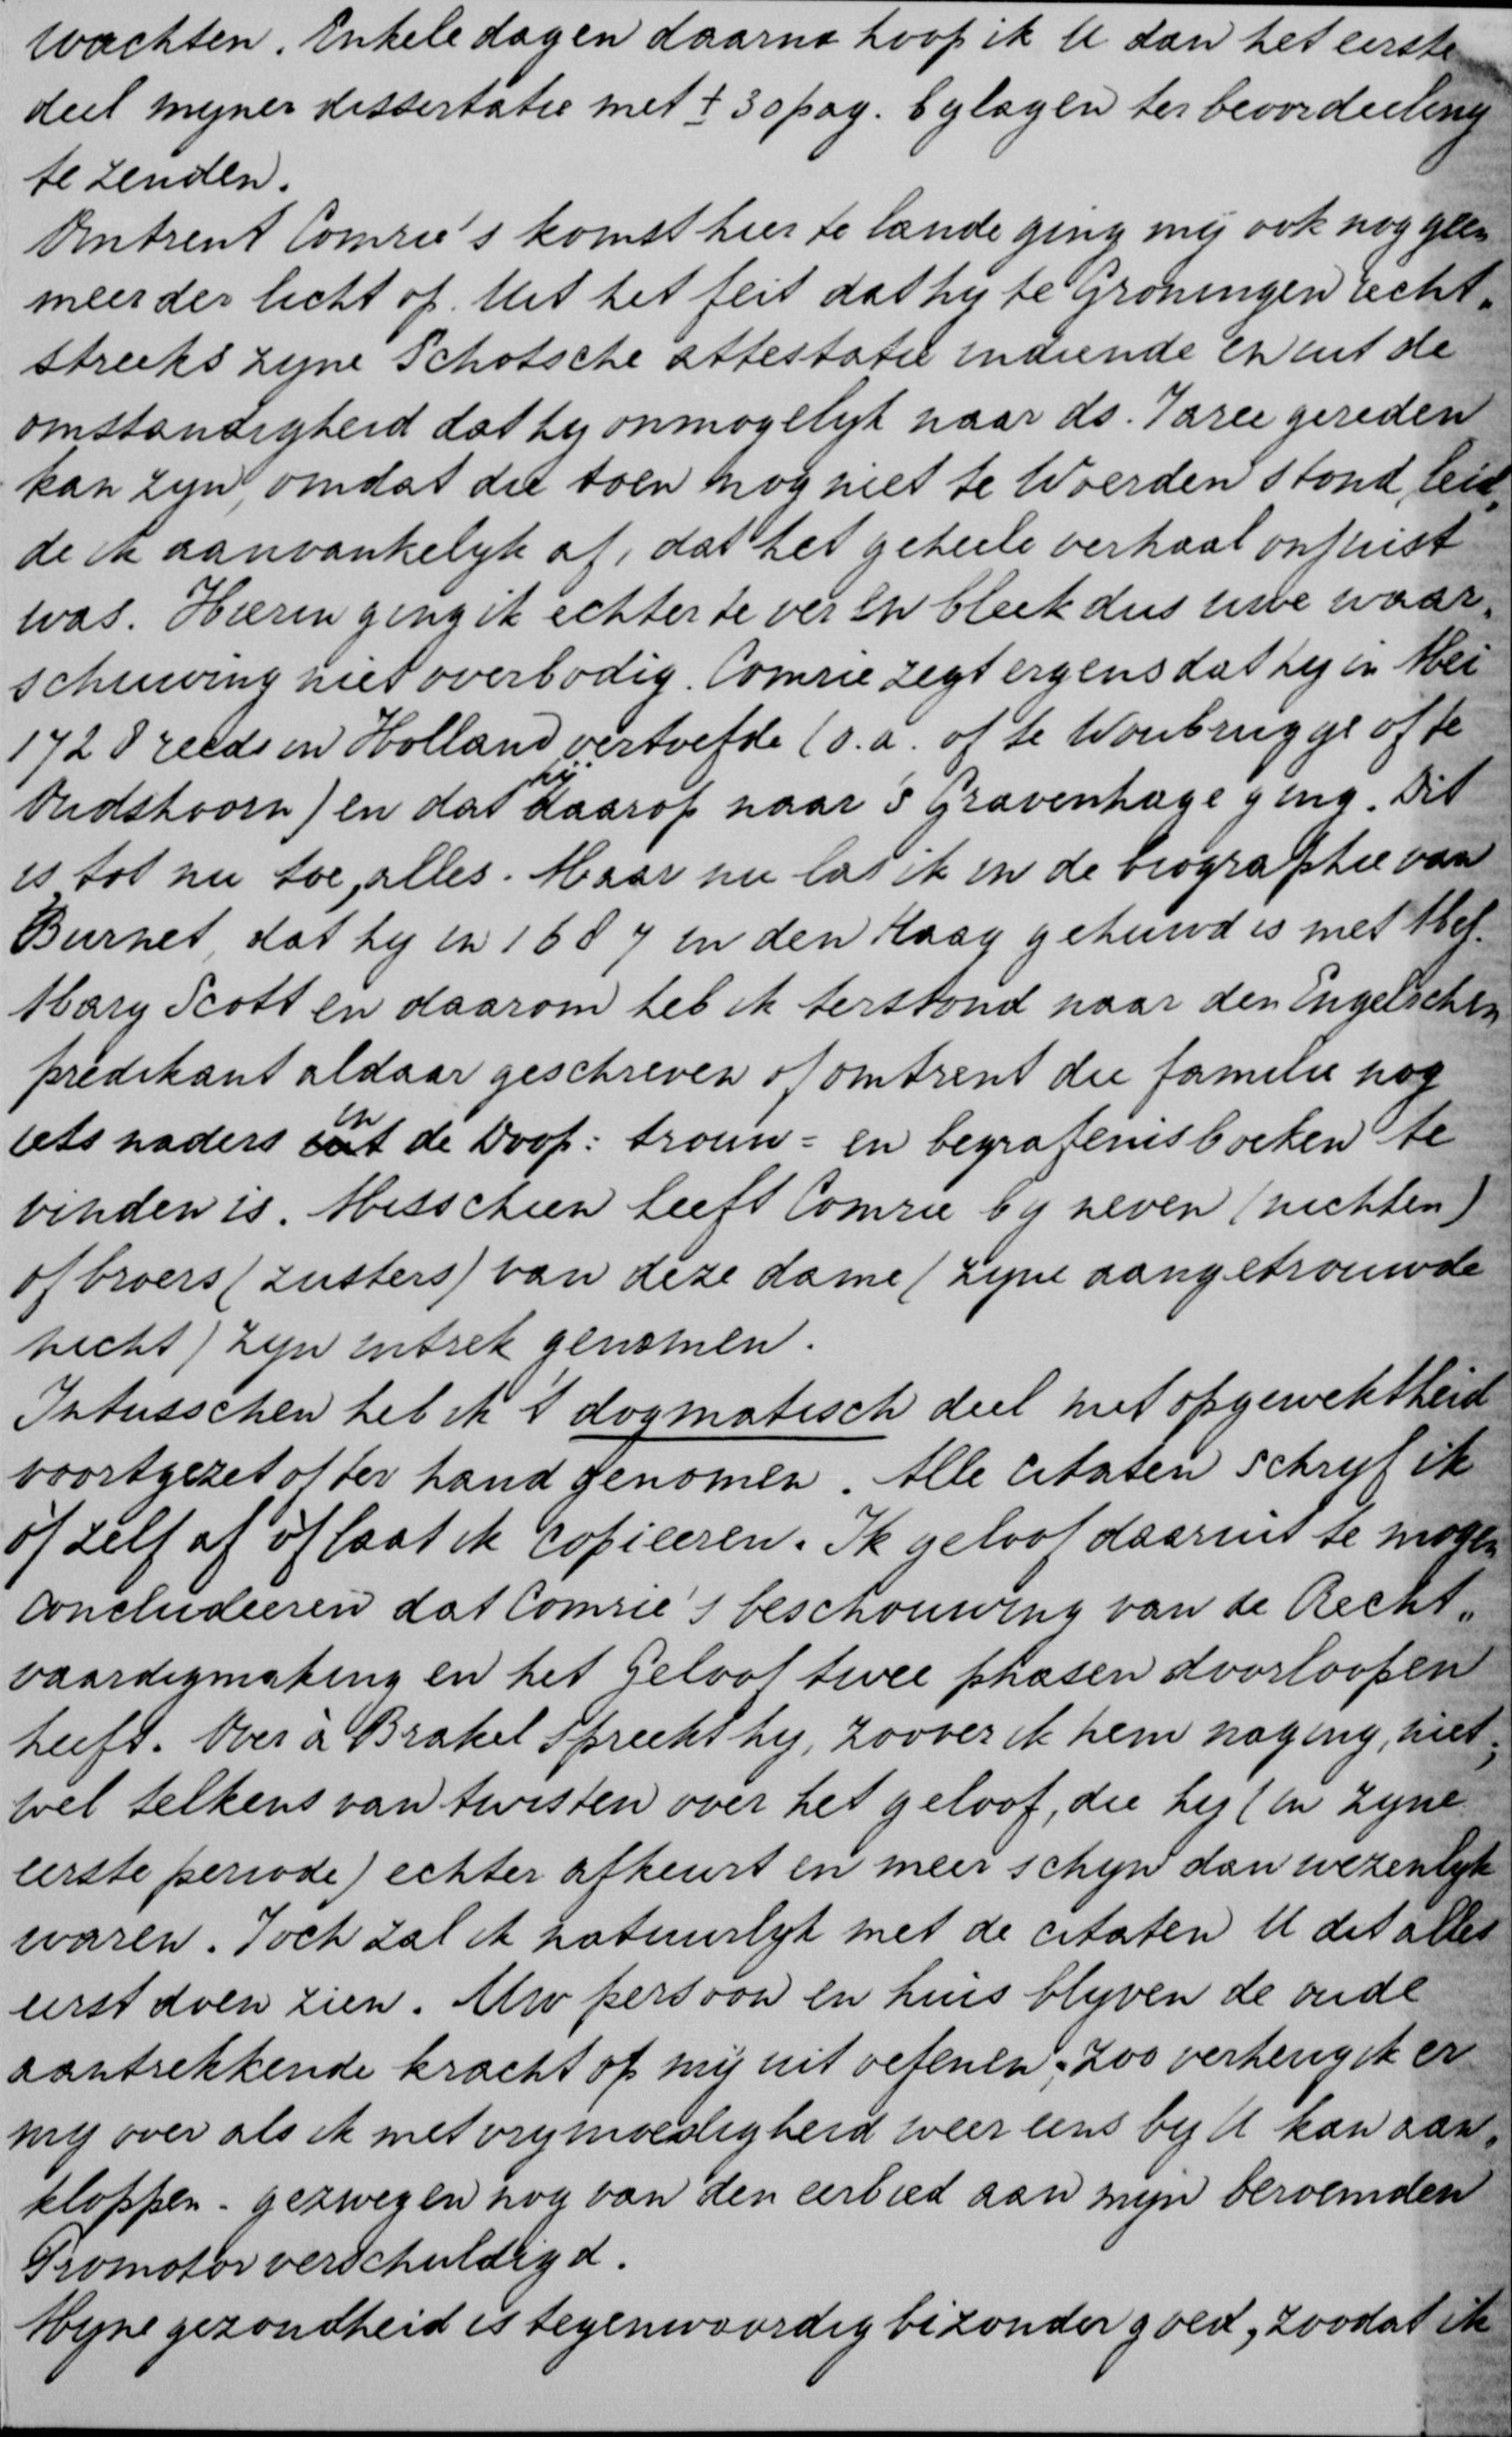 wachten. Enkele dagen daarna hoop ik U dan het eerste
deel mijner dissertatie met ± 30 pag. bijlagen ter beoordeeling
te zenden.
Omtrent Comrie's komst hier te lande ging mij ook nog geen
meerder licht op. Uit het feit dat hij te Groningen recht„
streeks zijne Schotsche attestatie indiende en uit de
omstandigheid dat hij onmogelijk naar ds. Taree gereden
kan zijn, omdat die toen nog niet te Woerden stond, leid„
de ik aanvankelijk af, dat het geheele verhaal onjuist
was. Hierin ging ik echter te ver en bleek dus uwe waar„
schuwing niet overbodig. Comrie zegt ergens dat hij in Mei
1728 reeds in Holland vertoefde (o.a. of te Woubrugge of te
Oudshoorn) en dat hij daarop naar 's Gravenhage ging. Dit
is, tot nu toe, alles. Maar nu las ik in de biographie van
Burnet, dat hij in 1687 in den Haag gehuwd is met Mej.
Mary Scott en daarom heb ik terstond naar den Engelschen
predikant aldaar geschreven of omtrent die familie nog
iets naders in de Doop: trouw= en begrafenisboeken te
vinden is. Misschien heeft Comrie bij neven (nichten)
of broers (zusters) van deze dame (zijne aangetrouwde
nicht) zijn intrek genomen.
Intusschen heb ik 't dogmatisch deel met opgewektheid
voortgezet of ter hand genomen. Alle citaten schrijf ik
òf zelf af òf laat ik copieeren. Ik geloof daaruit te mogen
concludeeren dat Comrie's beschouwing van de Recht„
vaardigmaking en het Geloof twee phasen doorloopen
heeft. Over à Brakel spreekt hij, zoover ik hem naging, niet;
wel telkens van twisten over het geloof, die hij (in zijne
eerste periode) echter afkeurt en meer schijn dan wezenlijk
waren. Toch zal ik natuurlijk met de citaten U dit alles
eerst doen zien. Uw persoon en huis blijven de oude
aantrekkende kracht op mij uitoefenen; zoo verheug ik er
mij over als ik met vrijmoedigheid weer eens bij U kan aan„
kloppen - gezwegen nog van den eerbied aan mijn beroemden
Promotor verschuldigd.
Mijne gezondheid is tegenwoordig bizonder goed, zoodat ik